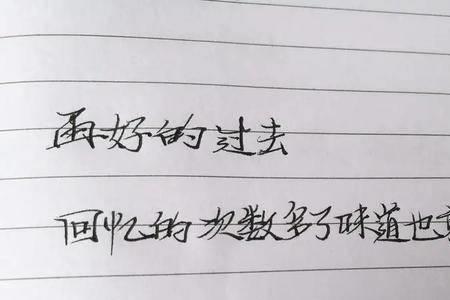 再好的过去
回忆的次数多了味道也